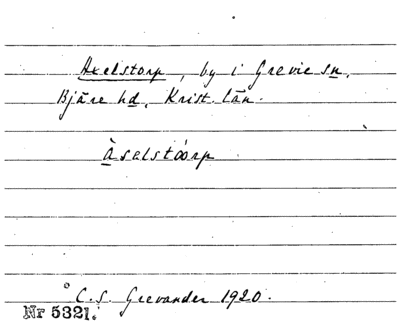 Axelstorp, by i Grevie sn,
Bjäre hd, Krist. län.
àselstó̄rp
C.S. Grevander 1920.
Nr 5321.